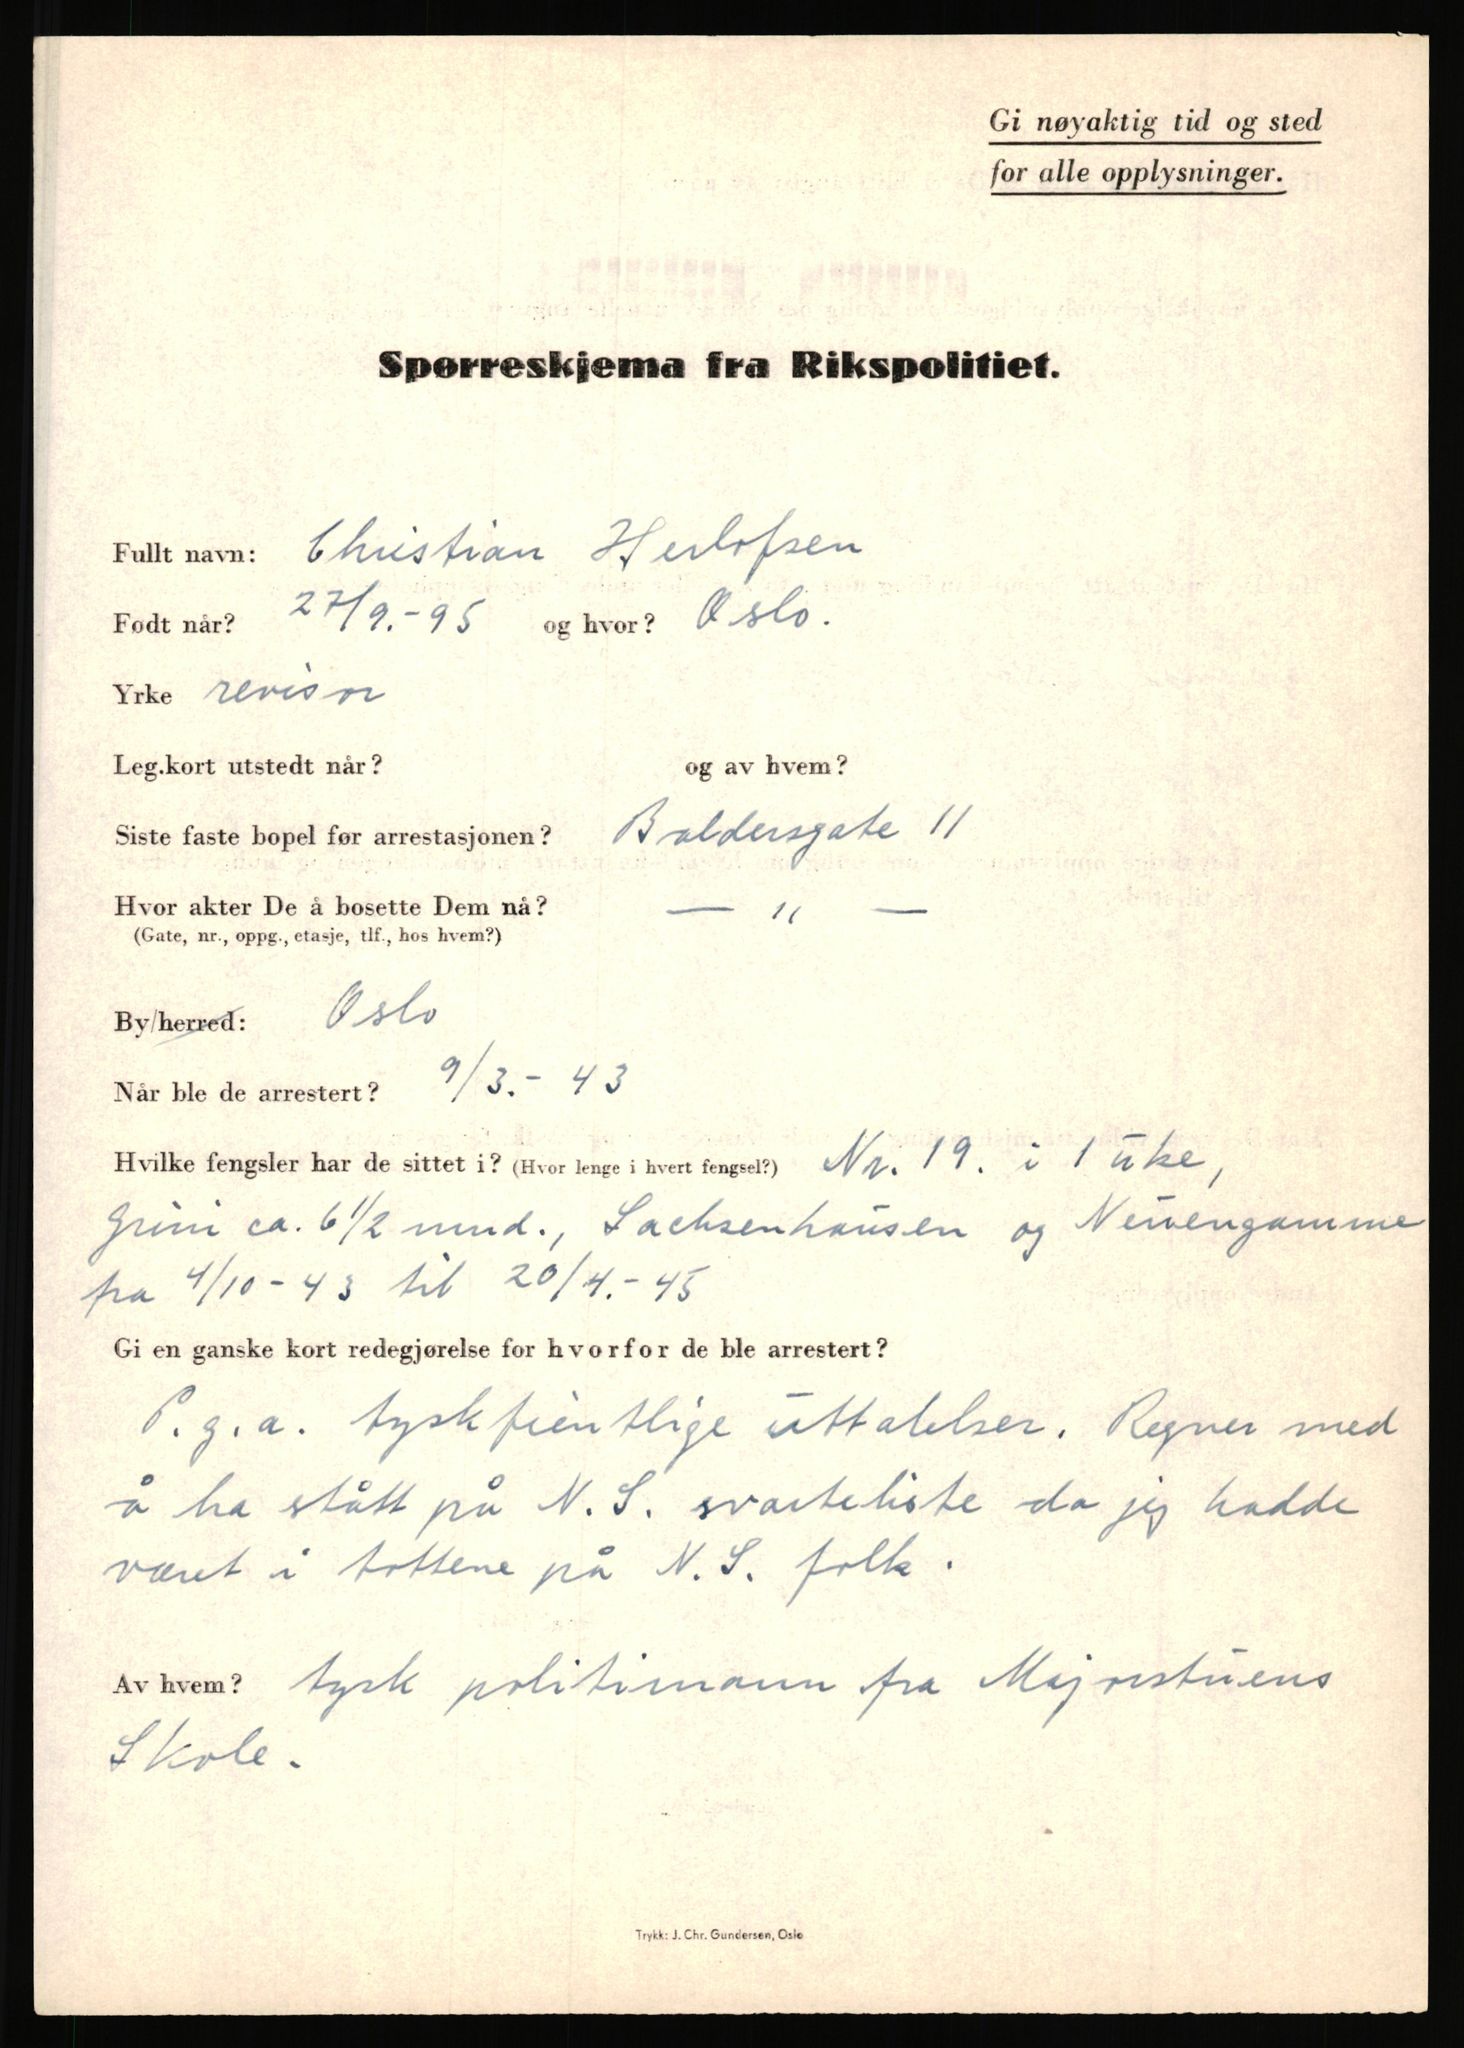 Gi nøyaktig tid og sted
for alle opplysninger.
Spørreskjema fra Rikspolitiet.
Fullt navn: Christian Herlofsen
Født når? 27/9.-95 og hvor? Oslo.
Yrke revisor
Leg.kort utstedt når? og av hvem?
Siste faste bopel før arrestasjonen? Baldersgate 11
Hvor akter De å bosette Dem nå? — " —
(Gate, nr., oppg., etasje, tlf., hos hvem?)
By/herred: Oslo
Når ble de arrestert? 9/3.- 43
Hvilke fengsler har de sittet i? (Hvor lenge i hvert fengsel?) Nr. 19. i 1 uke,
Grini ca. 6 1/2 mnd., Sachsenhausen og Neuengamme
fra 4/10-43 til 20/4.-45
Gi en ganske kort redegjørelse for hvorfor de ble arrestert?
P.g.a. tyskfientlige uttalelser. Regner med
å ha stått på N.S. svarteliste da jeg hadde
været i tottene på N.S. folk.
Av hvem? tysk politimann fra Majorstuens
Skole.
Trykk: J. Chr. Gundersen, Oslo